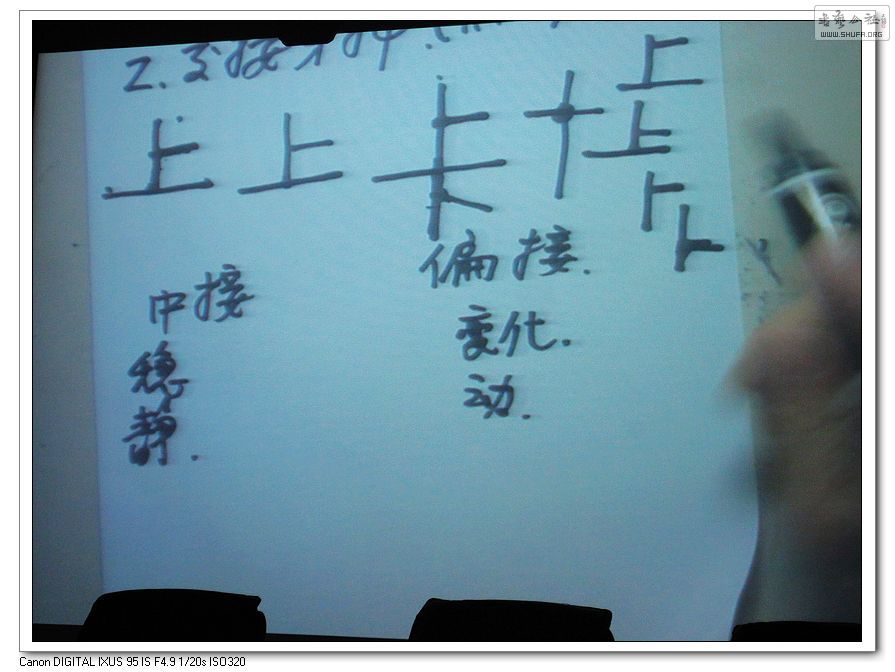 www.SHUFA.ORG
2.交接
上 上 上
中接
稳
静.
偏接.
变化.
动.
Canon DIGITAL IXUS 95 IS F4.9 1/20s ISO320